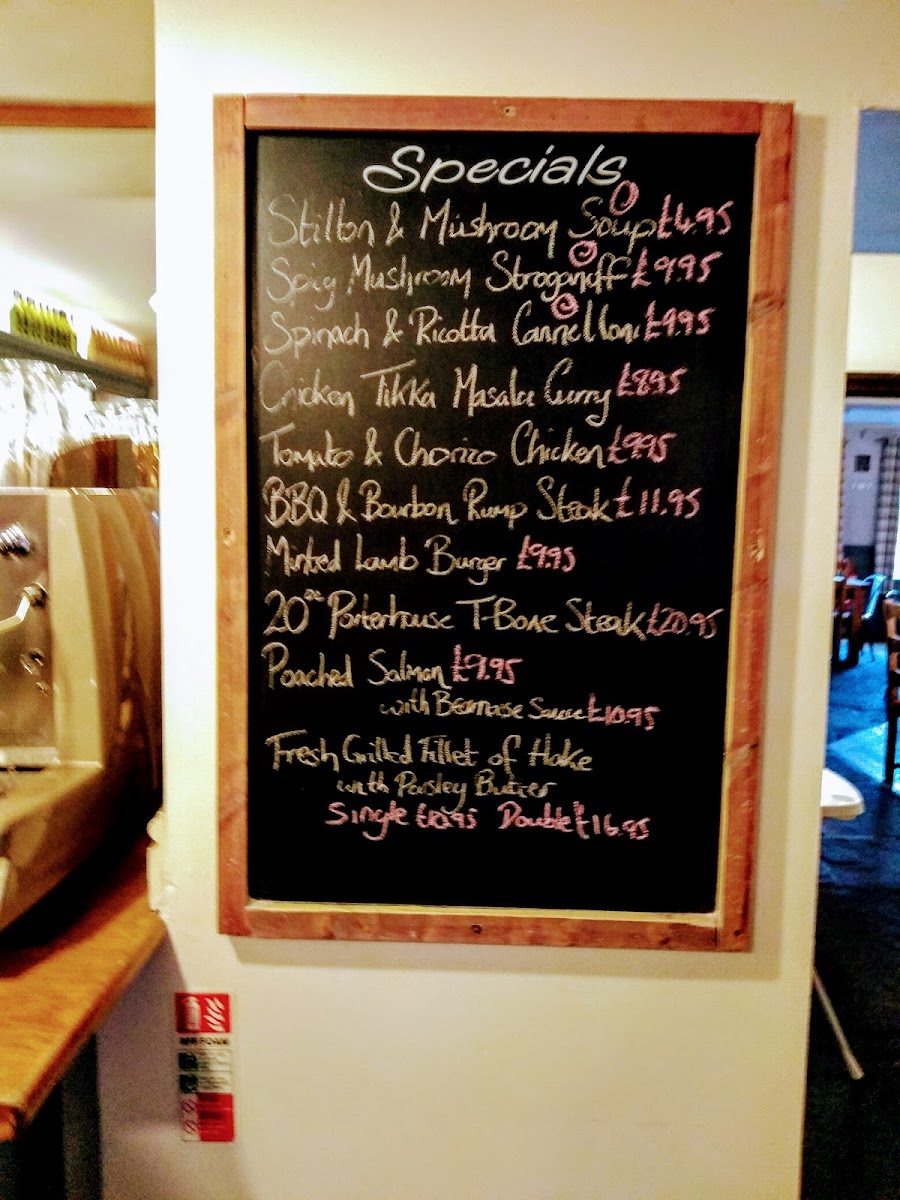 Specials
Stilton & Mushroom Soup £4.95
Spicy Mushroom Stroganoff £9.95
Spinach & Ricotta Cannelloni £9.95
Chicken Tikka Masala Curry £8.95
Tomato & Chorizo Chicken £9.95
BBQ & Bourbon Rump Steak £11.95
Minted Lamb Burger £9.95
20oz Porterhouse T-Bone Steak £20.95
Poached Salmon £9.95
with Bearnaise Sauce £10.95
Fresh Grilled Fillet of Hake
with Parsley Butter
Single £10.95 Double £16.95
AFF FOAM